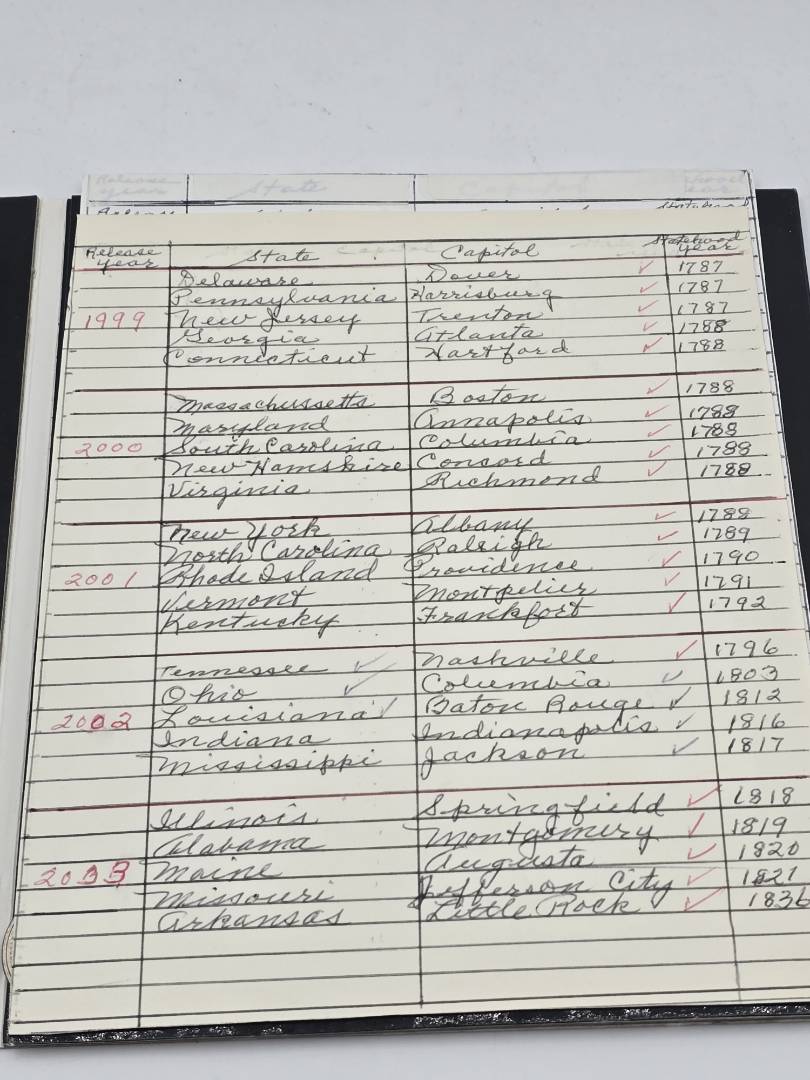 Release year State Capitol Statehood year
Release year State Capitol Statehood year
Delaware Dover ✓ 1787
Pennsylvania Harrisburg 1787
1999 New Jersey Trenton ✓ 1787
Georgia Atlanta ✓ 1788
Connecticut Hartford ✓ 1788
Massachussetts Boston ✓ 1788
Maryland Annapolis ✓ 1788
2000 South Carolina Columbia ✓ 1788
New Hamshire Concord ✓ 1788
Virginia Richmond ✓ 1788
New York Albany ✓ 1788
North Carolina Raleigh ✓ 1789
2001 Rhode Island Providence ✓ 1790
Vermont Montpelier ✓ 1791
Kentucky Frankfort ✓ 1792
Tennessee ✓ Nashville ✓ 1796
Ohio ✓ Columbia ✓ 1803
2002 Louisiana ✓ Baton Rouge ✓ 1812
Indiana Indianapolis ✓ 1816
Mississippi Jackson ✓ 1817
Illinois Springfield ✓ 1818
Alabama Montgomery ✓ 1819
2033 Maine Augusta ✓ 1820
Missouri Jefferson City ✓ 1821
Arkansas Little Rock ✓ 1836